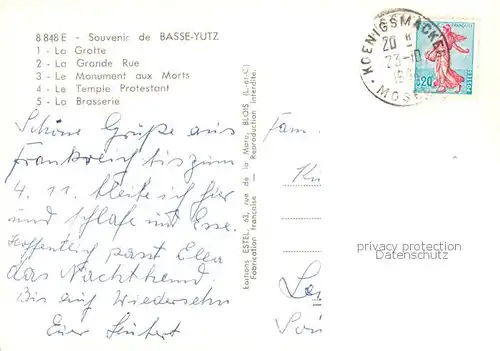 8 848 E - Souvenir de BASSE-YUTZ
1 - La Grotte
2 - La Grande Rue
3 - Le Monument aux Morts
4 - Le Temple Protestant
5 - La Brasserie
Schöne Grüße aus
Frankreich bis zum
4. 11. bleibe ich hier
und schlafe und Esse.
Hoffentlich passt Ellen
das Nachthemd.
Bis auf Wiedersehn
Euer
Editions ESTEL, 63, rue de la Mare, BLOIS (L.-et-C.)
Fabrication française — Reproduction interdite.
Fam.
KOENIGSMACKER
20 H
23-10
MOS
FRANÇAISE
0,20
POSTES
privacy protection
Datenschutz